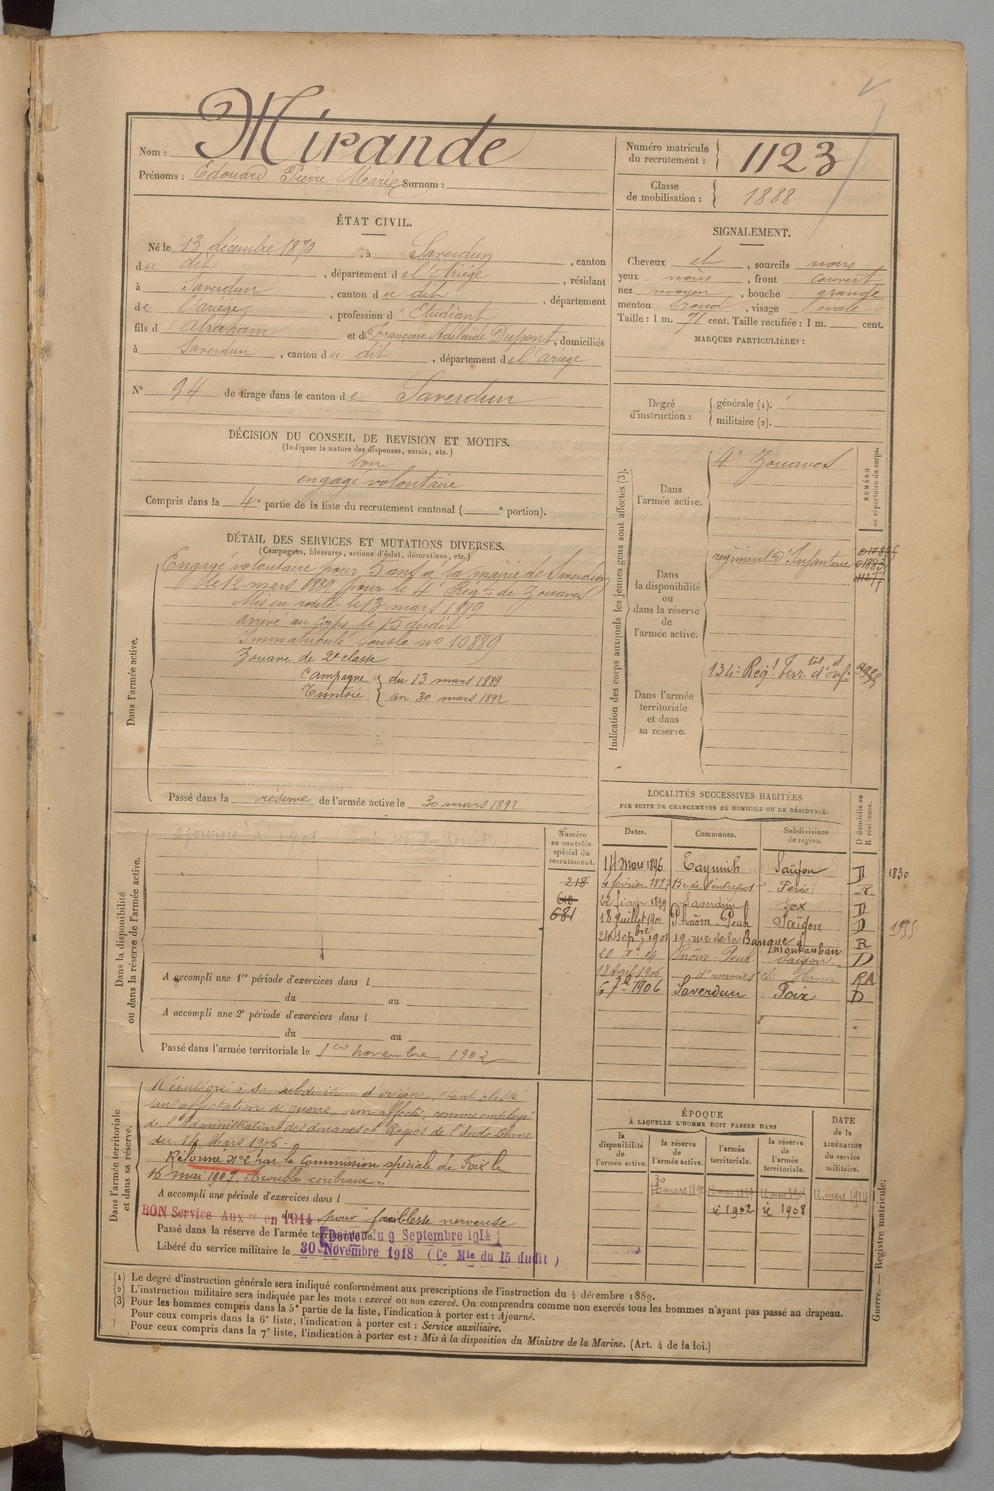 Nom : Mirande
Prénoms : Edouard Pierre Marie Surnom :
Numéro matricule du recrutement : 1123
Classe de mobilisation : 1888
ÉTAT CIVIL.
Né le 13 décembre 1870, à Saverdun, canton
du dit, département de l'Ariège, résidant
à Saverdun, canton du dit, département
de l'ariège, profession d'Etudiant
fils d'Abraham et de Françoise Adélaïde Dupont, domiciliés
à Saverdun, canton du dit, département de l'ariège
N° 94 de tirage dans le canton de Saverdun
SIGNALEMENT.
Cheveux et, sourcils noirs
yeux noirs, front couvert
nez moyen, bouche grande
menton rond, visage ovale
Taille : 1 m. 71 cent. Taille rectifiée : 1 m. cent.
MARQUES PARTICULIÈRES :
Degré d'instruction : générale (1).
militaire (2).
DÉCISION DU CONSEIL DE REVISION ET MOTIFS.
(Indiquer la nature des dispenses, sursis, etc.)
bon
engagé volontaire
Compris dans la 4e partie de la liste du recrutement cantonal ( e portion).
DÉTAIL DES SERVICES ET MUTATIONS DIVERSES.
(Campagnes, blessures, actions d'éclat, décorations, etc.)
Dans l'armée active.
Engagé volontaire pour 5 ans à la mairie de
le 12 mars 1889 pour le 4e Régnt de Zouaves
Mis en route le 13 mars 1889
arrivé au corps le 15 dudit
Immatriculé sous le no 10889
Zouave de 2e classe
Campagne du 13 mars 1889
Tunisie au 30 mars 1892
Passé dans la réserve de l'armée active le 30 mars 1892
Indication des corps auxquels les jeunes gens sont affectés (3).
NUMÉRO au répertoire du corps.
Dans l'armée active.
4e Zouaves
Dans la disponibilité ou dans la réserve de l'armée active.
régiment d'Infanterie
Dans l'armée territoriale et dans sa réserve.
134e Regt terr.ial d'infie
LOCALITÉS SUCCESSIVES HABITÉES
PAR SUITE DE CHANGEMENTS DE DOMICILE OU DE RÉSIDENCE.
Dates. Communes. Subdivisions de région. D domicile ou R résidence.
14 Mars 1896 Saïgon D 1830
février 1897 Bd de l'entrepot Paris R.
22 février 1899 Saverdun Foix D
18 juillet 1901 Phnôm Penh Saïgon D 1955
24 Sepbre 1901 19 rue de la Banque Montauban R
20 Xe 04 Pnôm Penh Saïgon D
12 Avril 1906 RA
6 7bre 1906 Saverdun Foix D
Dans la disponibilité ou dans la réserve de l'armée active.
Numéro au contrôle spécial du recrutement.
218
618
681
A accompli une 1re période d'exercices dans l
du au
A accompli une 2e période d'exercices dans l
du au
Passé dans l'armée territoriale le 1er novembre 1902
Dans l'armée territoriale et dans sa réserve.
Réintégré à sa subdivision d'origine, étant classé
sans affectation de guerre, non affecté, comme employé
de l'Administration des douanes et Régies de l'Indo Chine
du 14 Mars 1906.
Réformé No 2 par la Commission spéciale de Foix le
16 mai 1907. Troubles cérébraux.
A accompli une période d'exercices dans l
BON Service Auxre en 1914 pour faiblesse nerveuse
Passé dans la réserve de l'armée territoriale
(Décret du 9 Septembre 1914)
Libéré du service militaire le 30 Novembre 1918 (Ce Mle du 15 dudit)
ÉPOQUE
À LAQUELLE L'HOMME DOIT PASSER DANS
la disponibilité de l'armée active. la réserve de l'armée active. l'armée territoriale. la réserve de l'armée territoriale.
DATE de la LIBÉRATION du service militaire.
1902 1908
(1) Le degré d'instruction générale sera indiqué conformément aux prescriptions de l'instruction du 4 décembre 1889.
(2) L'instruction militaire sera indiquée par les mots : exercé ou non exercé. On comprendra comme non exercés tous les hommes n'ayant pas passé au drapeau.
(3) Pour les hommes compris dans la 5e partie de la liste, l'indication à porter est : Ajourné.
Pour ceux compris dans la 6e liste, l'indication à porter est : Service auxiliaire.
Pour ceux compris dans la 7e liste, l'indication à porter est : Mis à la disposition du Ministre de la Marine. (Art. 4 de la loi.)
Guerre. — Registre matricule.